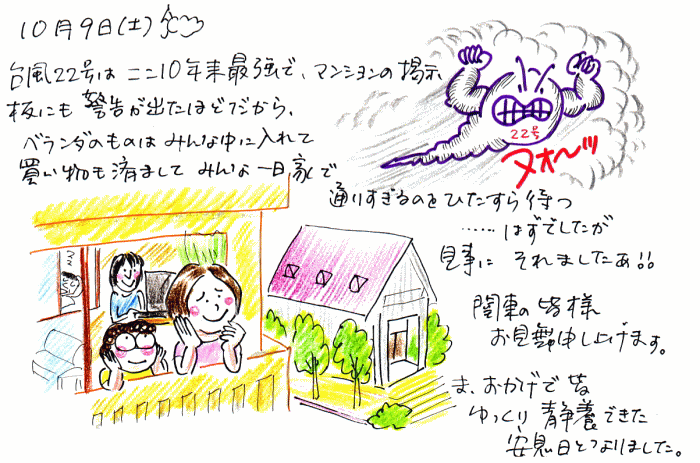 10月9日(土)
台風22号は ここ10年来最強で、マンションの掲示
板にも 警告が出たほどだから、
ベランダのものは みんな中に入れて
買い物も済まして みんな一日家で
通りすぎるのをひたすら待つ
……はずでしたが
見事に それましたぁ!!
関東の皆様
お見舞申し上げます。
ま、おかげで皆
ゆっくり 静養できた
安息日となりました。
22号
ヌオ〜ッ